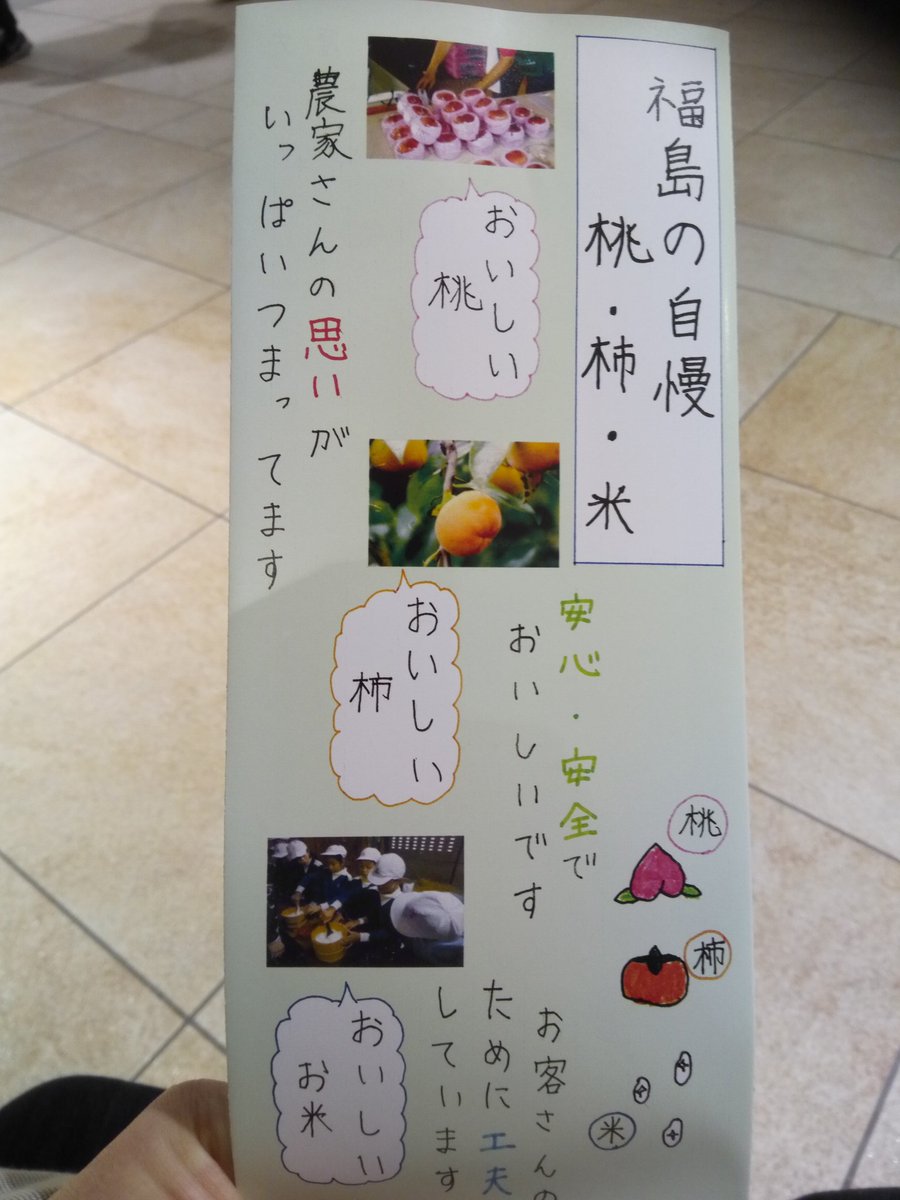 福島の自慢
桃・柿・米
おいしい
桃
農家さんの思いが
いっぱいつまってます
安心・安全で
おいしいです
おいしい
柿
桃
柿
米
お客さんの
ために工夫
しています
おいしい
お米